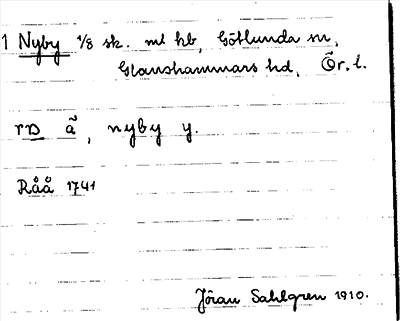 1 Nyby 1/8 sk. mt kb, Götlunda sn,
Glanshammars hd, Ör. l.
rD ã, nyby y.
Råå 1741
Jöran Sahlgren 1910.